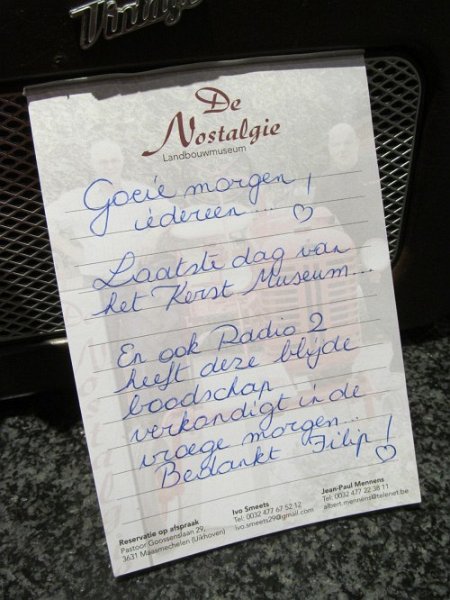 Vintage
De
Nostalgie
Landbouwmuseum
Goeie morgen !
iedereen... ♡
Laatste dag van
het Kerst Museum...
En ook Radio 2
heeft deze blijde
boodschap
verkondigt in de
vroege morgen...
Bedankt Filip !
♡
Reservatie op afspraak
Pastoor Goossenslaan 29,
3631 Maasmechelen (Uikhoven)
Ivo Smeets
Tel: 0032 477 67 52 12
ivo.smeets29@gmail.com
Jean-Paul Mennens
Tel: 0032 477 22 38 11
albert.mennens@telenet.be